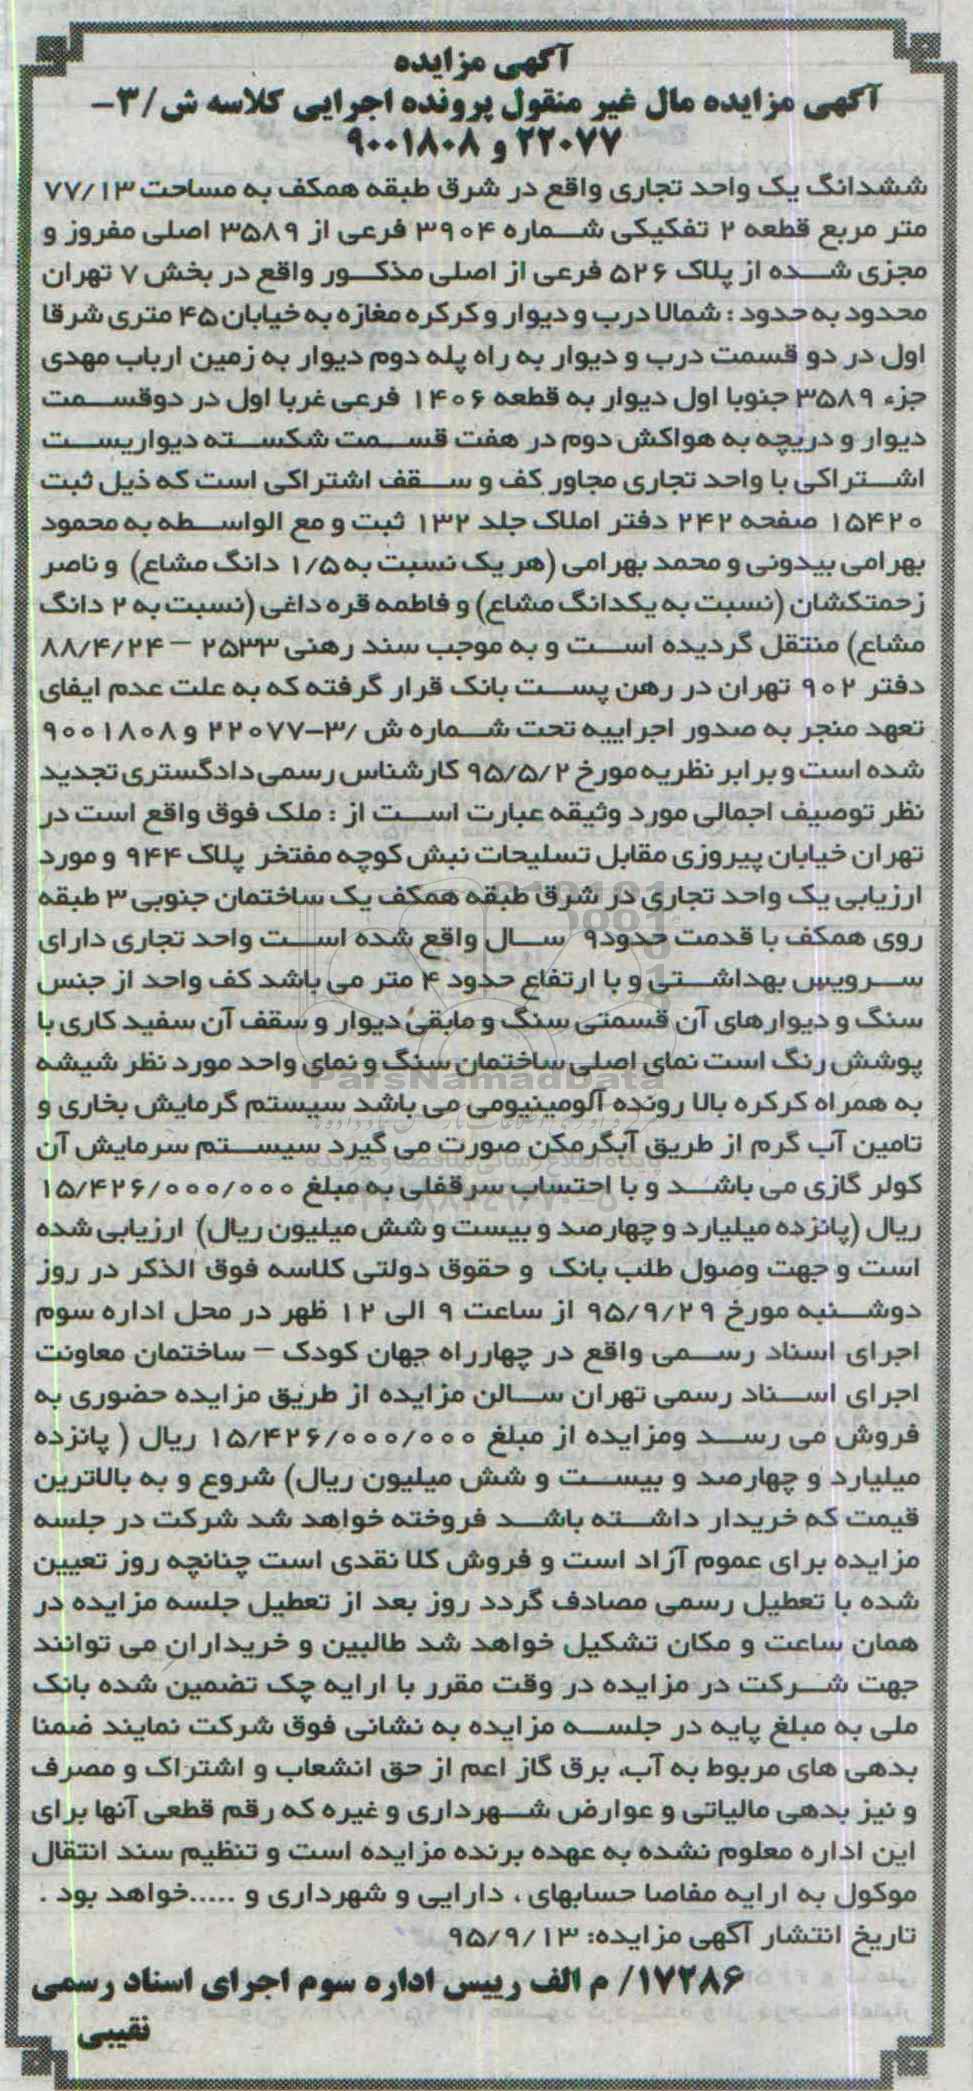 آگهی مزایده
آگهی مزایده مال غیر منقول پرونده اجرایی کلاسه ش/۳-
۲۲۰۷۷ و ۹۰۰۱۸۰۸
ششدانگ یک واحد تجاری واقع در شرق طبقه همکف به مساحت ۷۷/۱۳
متر مربع قطعه ۲ تفکیکی شماره ۳۹۰۴ فرعی از ۳۵۸۹ اصلی مفروز و
مجزی شده از پلاک ۵۲۶ فرعی از اصلی مذکور واقع در بخش ۷ تهران
محدود به حدود : شمالا درب و دیوار و کرکره مغازه به خیابان ۴۵ متری شرقا
اول در دو قسمت درب و دیوار به راه پله دوم دیوار به زمین ارباب مهدی
جزء ۳۵۸۹ جنوبا اول دیوار به قطعه ۱۴۰۶ فرعی غربا اول در دوقسمت
دیوار و دریچه به هواکش دوم در هفت قسمت شکسته دیواریست
اشتراکی با واحد تجاری مجاور کف و سقف اشتراکی است که ذیل ثبت
۱۵۴۲۰ صفحه ۲۴۲ دفتر املاک جلد ۱۳۲ ثبت و مع الواسطه به محمود
بهرامی بیدونی و محمد بهرامی (هر یک نسبت به ۱/۵ دانگ مشاع) و ناصر
زحمتکشان (نسبت به یکدانگ مشاع) و فاطمه قره داغی (نسبت به ۲ دانگ
مشاع) منتقل گردیده است و به موجب سند رهنی ۲۵۳۳ – ۸۸/۴/۲۴
دفتر ۹۰۲ تهران در رهن پست بانک قرار گرفته که به علت عدم ایفای
تعهد منجر به صدور اجراییه تحت شماره ش /۳-۲۲۰۷۷ و ۹۰۰۱۸۰۸
شده است و برابر نظریه مورخ ۹۵/۵/۲ کارشناس رسمی دادگستری تجدید
نظر توصیف اجمالی مورد وثیقه عبارت است از : ملک فوق واقع است در
تهران خیابان پیروزی مقابل تسلیحات نبش کوچه مفتخر پلاک ۹۴۴ و مورد
ارزیابی یک واحد تجاری در شرق طبقه همکف یک ساختمان جنوبی ۳ طبقه
روی همکف با قدمت حدود۹ سال واقع شده است واحد تجاری دارای
سرویس بهداشتی و با ارتفاع حدود ۴ متر می باشد کف واحد از جنس
سنگ و دیوارهای آن قسمتی سنگ و مابقی دیوار و سقف آن سفید کاری با
پوشش رنگ است نمای اصلی ساختمان سنگ و نمای واحد مورد نظر شیشه
به همراه کرکره بالا رونده آلومینیومی می باشد سیستم گرمایش بخاری و
تامین آب گرم از طریق آبگرمکن صورت می گیرد سیستم سرمایش آن
کولر گازی می باشد و با احتساب سرقفلی به مبلغ ۱۵/۴۲۶/۰۰۰/۰۰۰
ریال (پانزده میلیارد و چهارصد و بیست و شش میلیون ریال) ارزیابی شده
است و جهت وصول طلب بانک و حقوق دولتی کلاسه فوق الذکر در روز
دوشنبه مورخ ۹۵/۹/۲۹ از ساعت ۹ الی ۱۲ ظهر در محل اداره سوم
اجرای اسناد رسمی واقع در چهارراه جهان کودک – ساختمان معاونت
اجرای اسناد رسمی تهران سالن مزایده از طریق مزایده حضوری به
فروش می رسد ومزایده از مبلغ ۱۵/۴۲۶/۰۰۰/۰۰۰ ریال ( پانزده
میلیارد و چهارصد و بیست و شش میلیون ریال) شروع و به بالاترین
قیمت که خریدار داشته باشد فروخته خواهد شد شرکت در جلسه
مزایده برای عموم آزاد است و فروش کلا نقدی است چنانچه روز تعیین
شده با تعطیل رسمی مصادف گردد روز بعد از تعطیل جلسه مزایده در
همان ساعت و مکان تشکیل خواهد شد طالبین و خریداران می توانند
جهت شرکت در مزایده در وقت مقرر با ارایه چک تضمین شده بانک
ملی به مبلغ پایه در جلسه مزایده به نشانی فوق شرکت نمایند ضمنا
بدهی های مربوط به آب، برق گاز اعم از حق انشعاب و اشتراک و مصرف
و نیز بدهی مالیاتی و عوارض شهرداری و غیره که رقم قطعی آنها برای
این اداره معلوم نشده به عهده برنده مزایده است و تنظیم سند انتقال
موکول به ارایه مفاصا حسابهای ، دارایی و شهرداری و .....خواهد بود .
تاریخ انتشار آگهی مزایده: ۹۵/۹/۱۳
۱۷۲۸۶/ م الف رییس اداره سوم اجرای اسناد رسمی
نقیبی
ParsNamadData